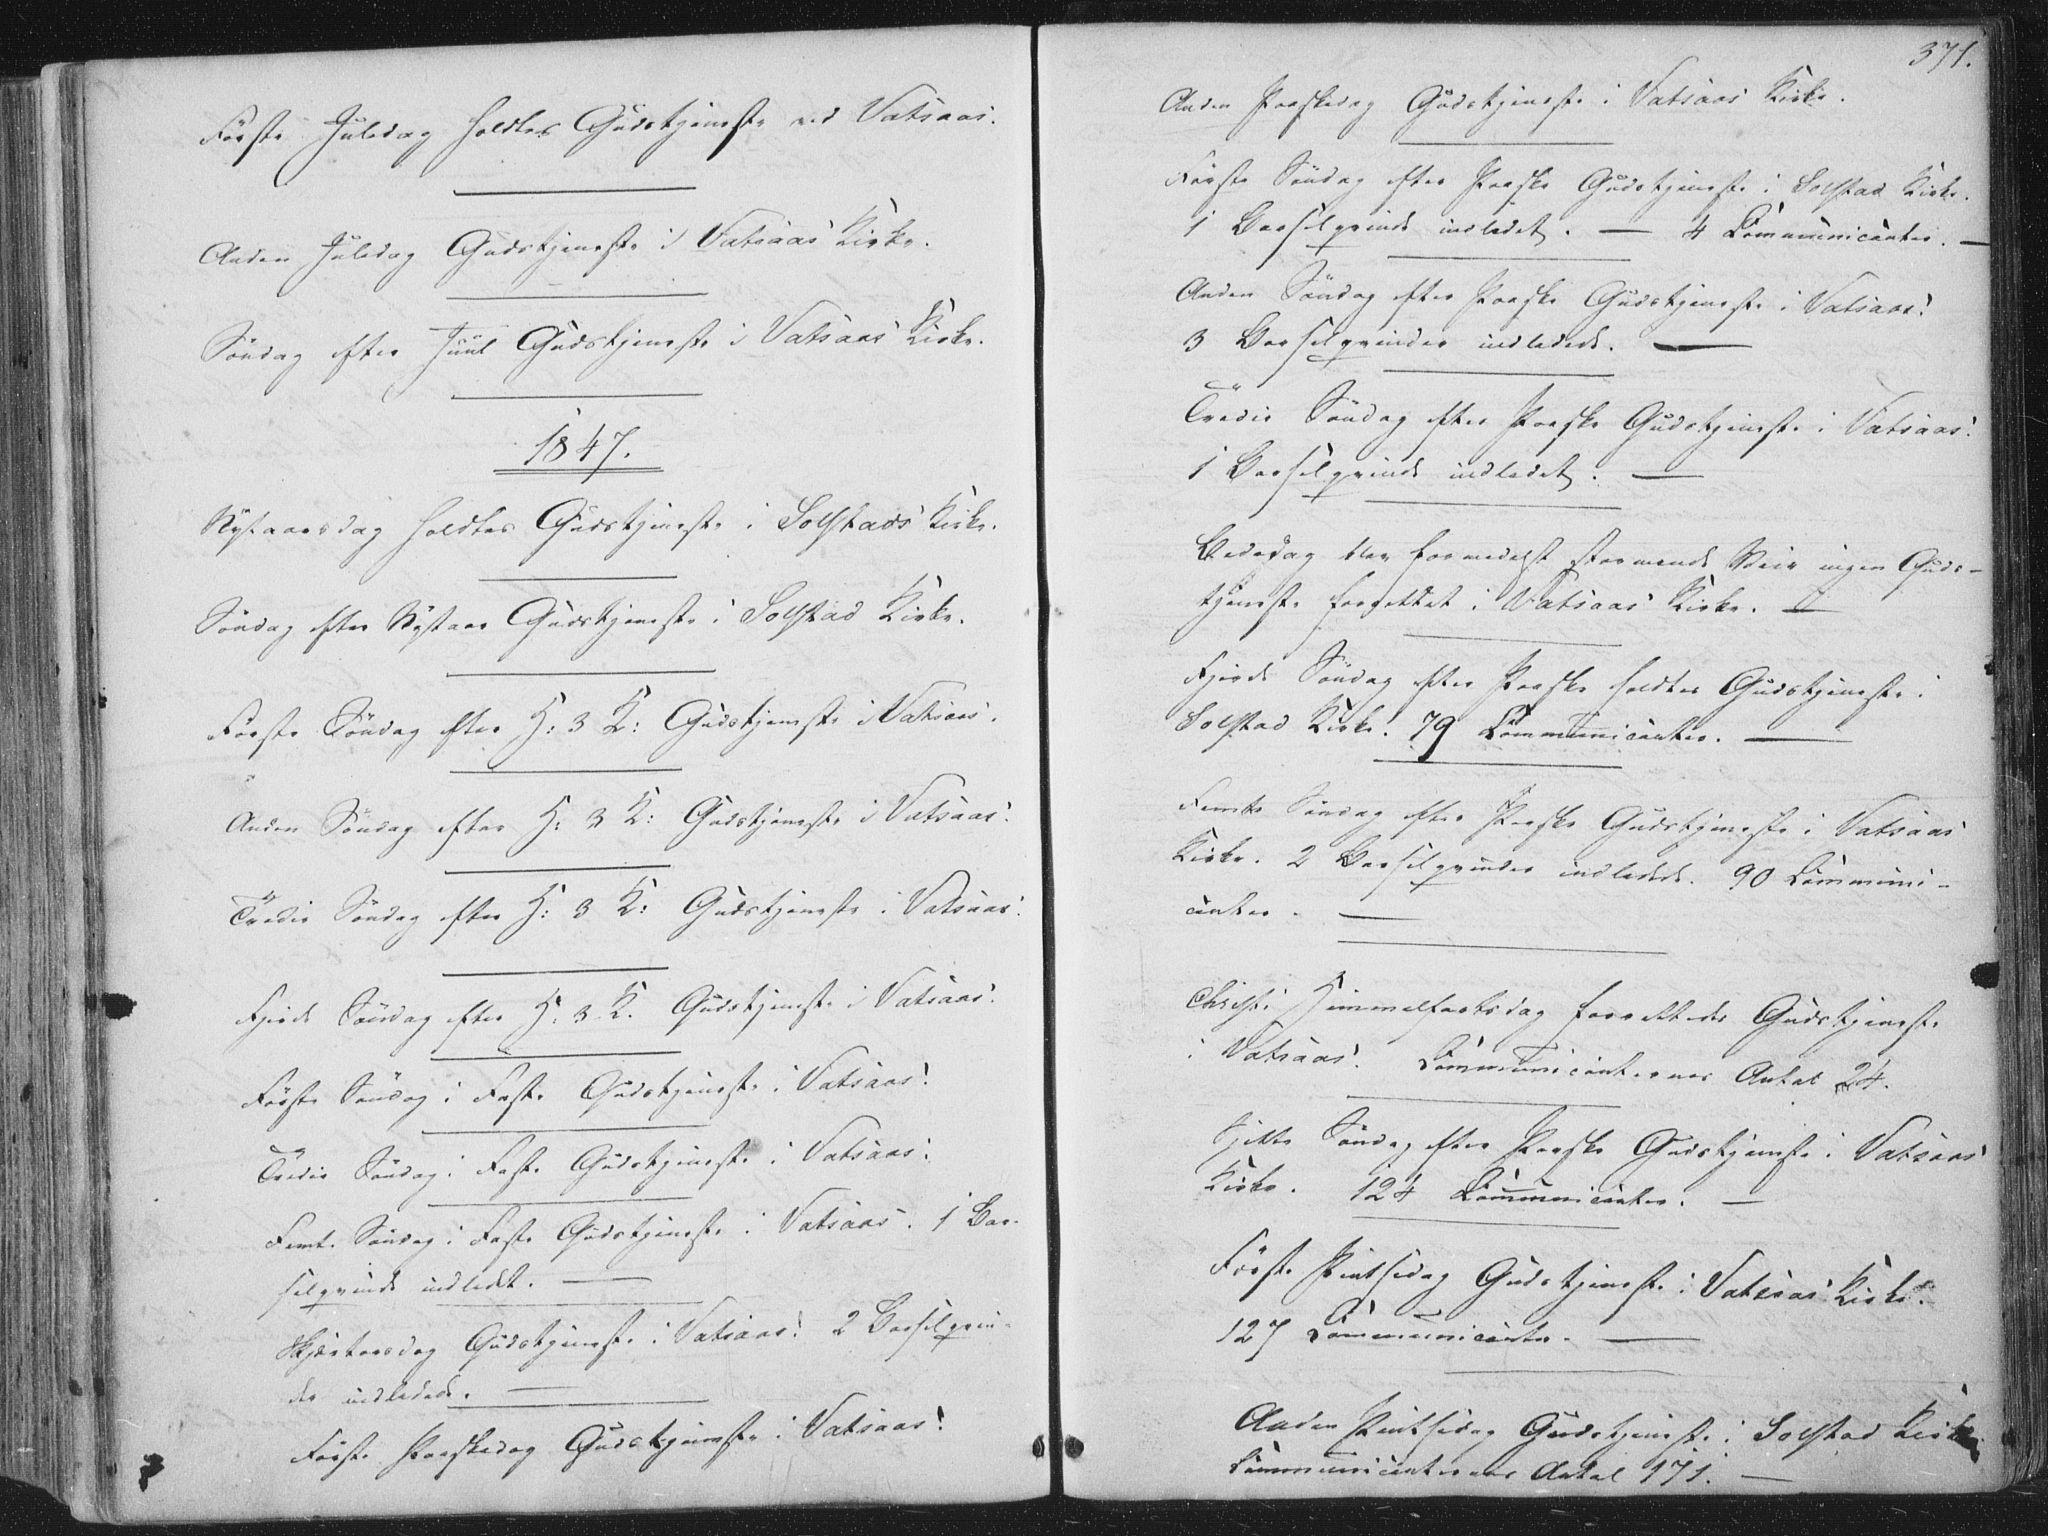 Første Juledag holdtes Gudstjeneste ved Vatsaas.
Anden Juledag Gudstjeneste i Vatsaas Kirke.
Søndag efter Juul Gudstjeneste i Vatsaas Kirke.
1847.
Nytaarsdag holdtes Gudstjeneste i Solstads Kirke.
Søndag efter Nytaar Gudstjeneste i Solstad Kirke.
Første Søndag efter H: 3 K: Gudstjeneste i Vatsaas.
Anden Søndag efter H: 3 K: Gudstjeneste i Vatsaas.
Tredie Søndag efter H: 3 K: Gudstjeneste i Vatsaas.
Fjerde Søndag efter H: 3 K. Gudstjeneste i Vatsaas.
Første Søndag i Faste Gudstjeneste i Vatsaas.
Tredie Søndag i Faste Gudstjeneste i Vatsaas.
Femte Søndag i Faste Gudstjeneste i Vatsaas. 1 Bar-
selqvinde indledet. —
Skjærtorsdag Gudstjeneste i Vatsaas. 2 Barselqvin-
der indledede. —
Første Paaskedag Gudstjeneste i Vatsaas.
371.
Anden Paaskedag Gudstjeneste i Vatsaas Kirke.
Første Søndag efter Paaske Gudstjeneste i Solstad Kirke.
1 Barselqvinde indledet. — 4 Communicanter. —
Anden Søndag efter Paaske Gudstjeneste i Vatsaas.
3 Barselqvinder indledede. —
Tredie Søndag efter Paaske Gudstjeneste i Vatsaas.
1 Barselqvinde indledet. —
Bededag blev formedelst stormende Veir ingen Guds-
tjeneste forrettet i Vatsaas Kirke. —
Fjerde Søndag efter Paaske holdtes Gudstjeneste i
Solstad Kirke. 79 Communicanter. —
Femte Søndag efter Paaske Gudstjeneste i Vatsaas
Kirke. 2 Barselqvinder indledede. 90 Communi-
canter. —
Christi Himmelfartsdag forrettedes Gudstjeneste
i Vatsaas. Communicanternes Antal 24.
Sjette Søndag efter Paaske Gudstjeneste i Vatsaas
Kirke. 124 Communicanter. —
Første Pintsedag Gudstjeneste i Vatsaas Kirke.
127 Communicanter. —
Anden Pintsedag Gudstjeneste i Solstad Kirke
Communicanternes Antal 171. —